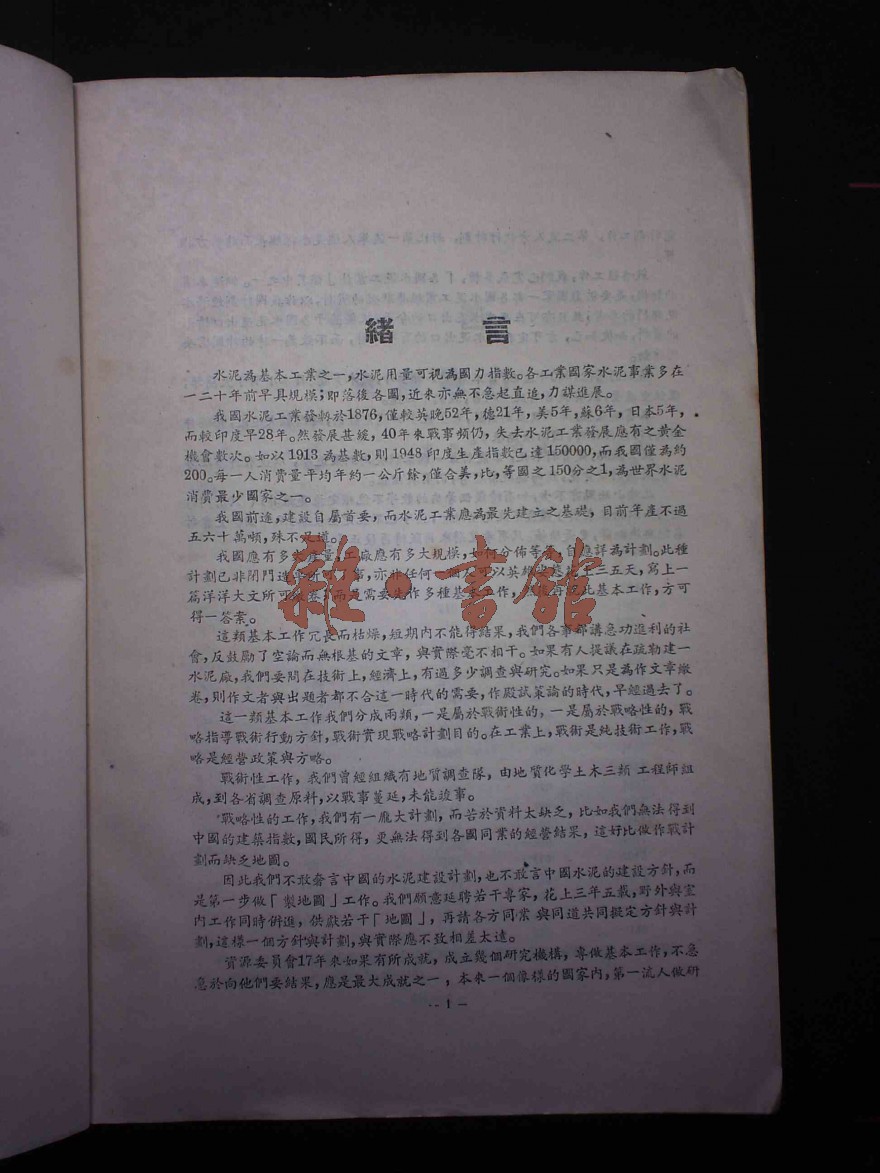 緒言
水泥為基本工業之一，水泥用量可視為國力指數。各工業國家水泥事業多在
一二十年前早具規模；即落後各國，近來亦無不急起直追，力謀進展。
我國水泥工業發軔於1876，僅較英晚52年，德21年，美5年，蘇6年，日本5年，
而較印度早28年。然發展甚緩，40年來戰事頻仍，失去水泥工業發展應有之黃金
機會數次。如以1913為基數，則1948印度生產指數已達150000，而我國僅為約
200。每一人消費量平均年約一公斤餘，僅合美，比，等國之150分之1，為世界水泥
消費最少國家之一。
我國前途，建設自屬首要，而水泥工業應為最先建立之基礎，目前年產不過
五六十萬噸，殊不足道。
我國應有多大產量，工廠應有多大規模，如何分佈等等，自應詳為計劃。此種
計劃已非閉門造車所可了事，亦非任何一個人可以英雄出基地上三五天，寫上一
篇洋洋大文所可繳卷，而是需要先作多種基本工作，然後再說此基本工作，方可
得一答案。
這類基本工作冗長而枯燥，短期內不能得結果，我們各事都講急功進利的社
會，反鼓勵了空論而無根基的文章，與實際毫不相干。如果有人提議在疏勒建一
水泥廠，我們要問在技術上，經濟上，有過多少調查與研究。如果只是為作文章繳
卷，則作文者與出題者都不合這一時代的需要，作殿試策論的時代，早經過去了。
這一類基本工作我們分成兩類，一是屬於戰術性的，一是屬於戰略性的，戰
略指導戰術行動方針，戰術實現戰略計劃目的。在工業上，戰術是純技術工作，戰
略是經營政策與方略。
戰術性工作，我們曾經組織有地質調查隊，由地質化學土木三類工程師組
成，到各省調查原料，以戰事蔓延，未能竣事。
戰略性的工作，我們有一龐大計劃，而苦於資料太缺乏，比如我們無法得到
中國的建築指數，國民所得，更無法得到各國同業的經營結果，這好比做作戰計
劃而缺乏地圖。
因此我們不敢奢言中國的水泥建設計劃，也不敢言中國水泥的建設方針，而
是第一步做「製地圖」工作。我們願意延聘若干專家，花上三年五載，野外與室
內工作同時併進，供獻若干「地圖」，再請各方同業與同道共同擬定方針與計
劃，這樣一個方針與計劃，與實際應不致相差太遠。
資源委員會17年來如果有所成就，成立幾個研究機構，專做基本工作，不急
急於向他們要結果，應是最大成就之一，本來一個像樣的國家內，第一流人做研
--1--
雜·書館